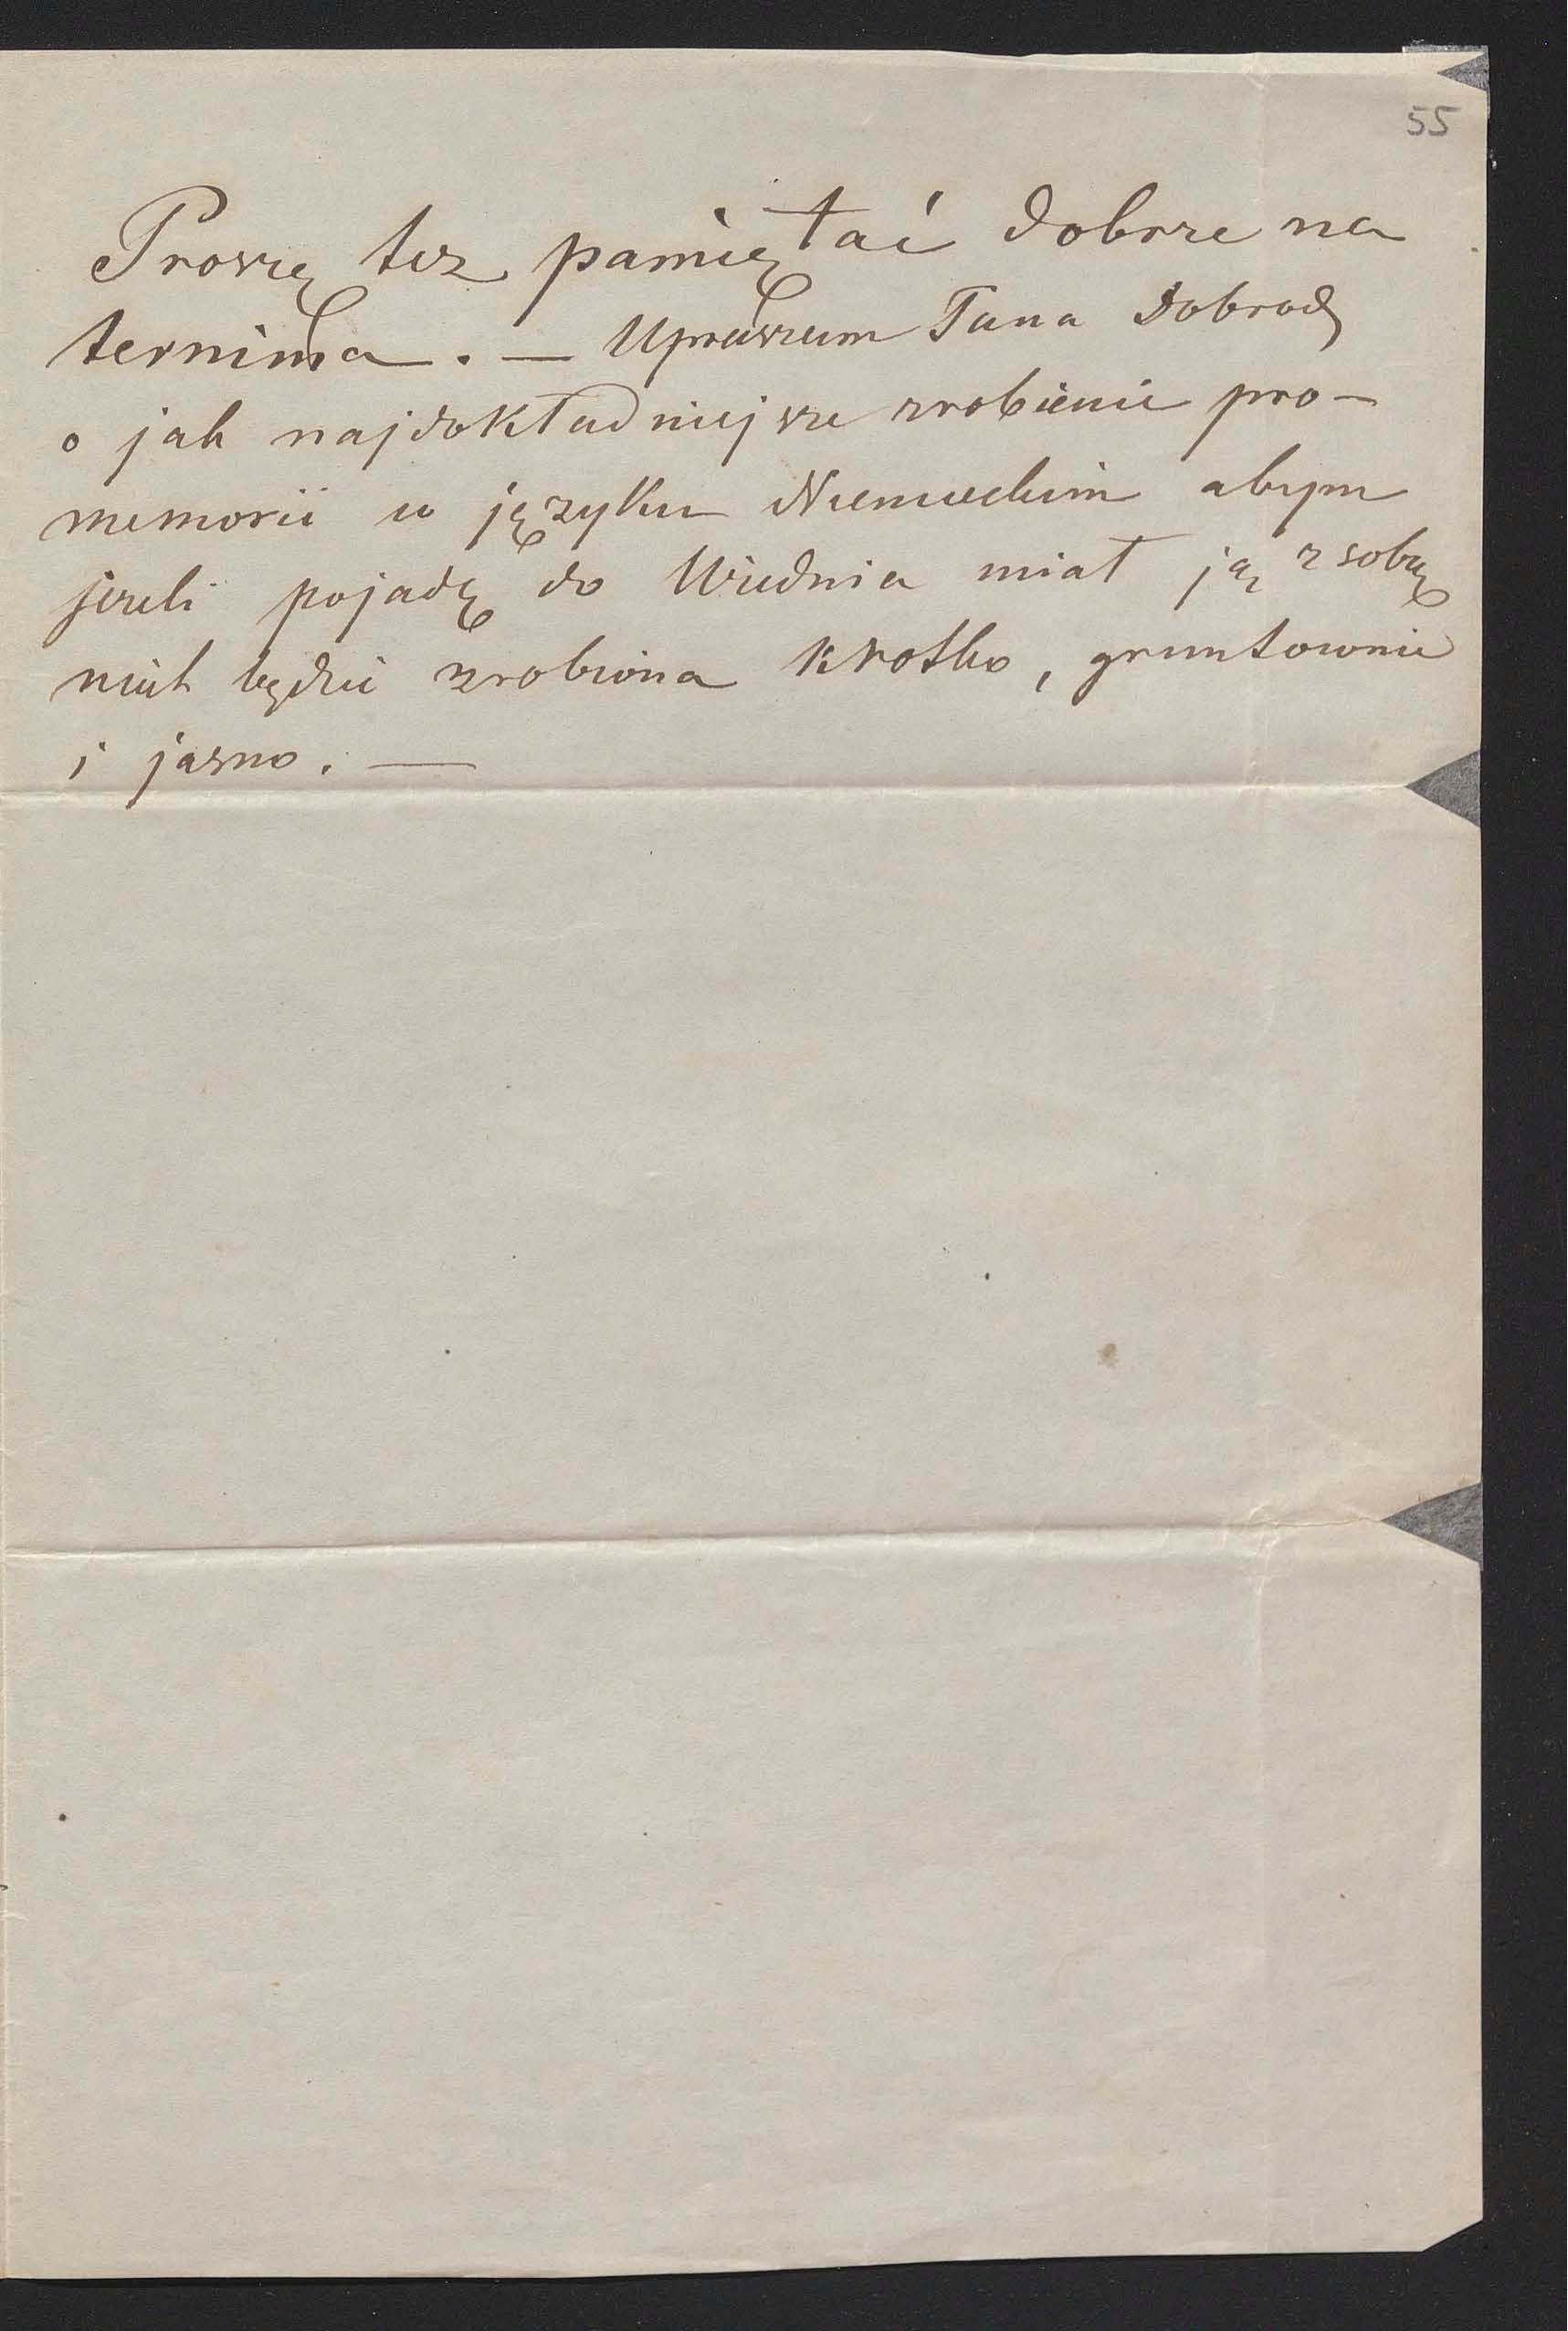 55
Proszę tez pamiętać dobrze na
termina. — Upraszam Pana Dobrodz
o jak najdokładniejsze zrobienie pro-
memorii w języku Niemieckim abym
jezeli pojadę do Wiednia miał ją z sobą
niech będzie zrobiona krotko, gruntownie
i jasno. —